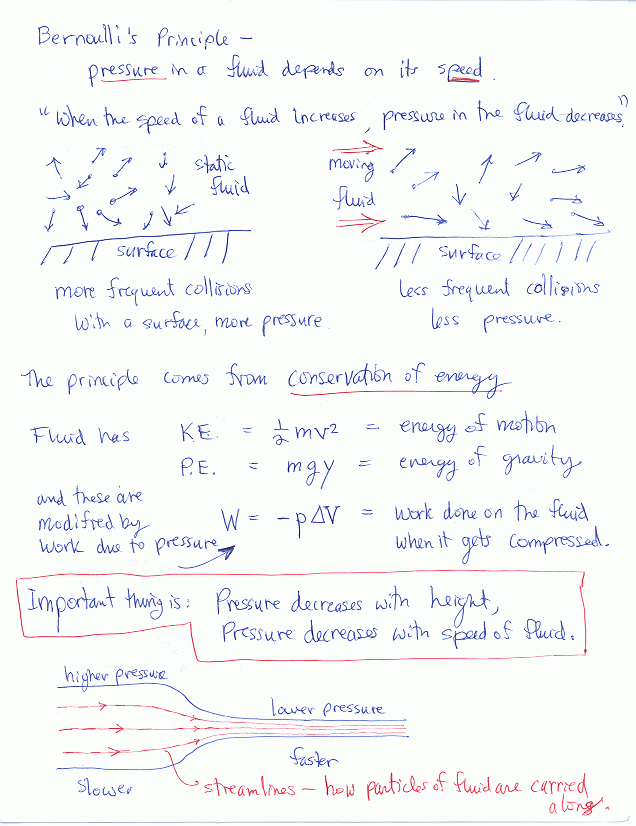 Bernoulli's Principle –
pressure in a fluid depends on its speed.
"When the speed of a fluid increases, pressure in the fluid decreases."
static
fluid
surface
more frequent collisions
with a surface, more pressure
moving
fluid
surface
less frequent collisions
less pressure.
The principle comes from conservation of energy
Fluid has K.E. = ½mv² = energy of motion
P.E. = mgy = energy of gravity
and these are
modified by
work due to pressure
W = -pΔV = work done on the fluid
when it gets compressed.
Important thing is: Pressure decreases with height,
Pressure decreases with speed of fluid.
higher pressure
lower pressure
faster
slower
streamlines – how particles of fluid are carried
along.